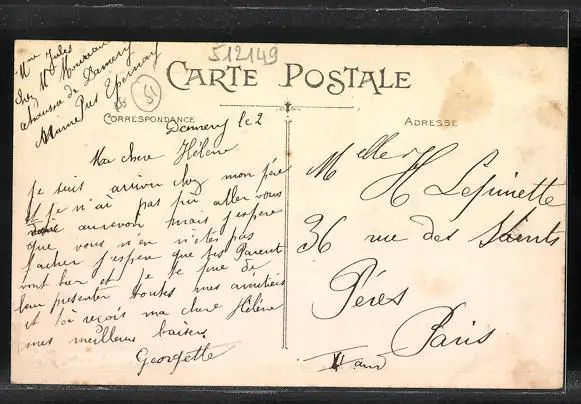 Mme Jules
chez Mr Moureau
chaussée de Damery
Marne Près Epernay
512149
51
CARTE POSTALE
CORRESPONDANCE
ADRESSE
Damery le 2
Ma chere Hélène
Je suis arrivé chez mon père
et je n'ai pas pu aller vous
aurevoir mais j'espère
que vous n'en n'êtes pas
faché j'espère que tes Parent
vont bien et je te prie de
leur présenter toutes mes amitiées
et toi reçois ma chere Hélène
mes meilleurs baisers
Georgette
Melle H Lepinette
36 rue des Saints
Pères
Paris